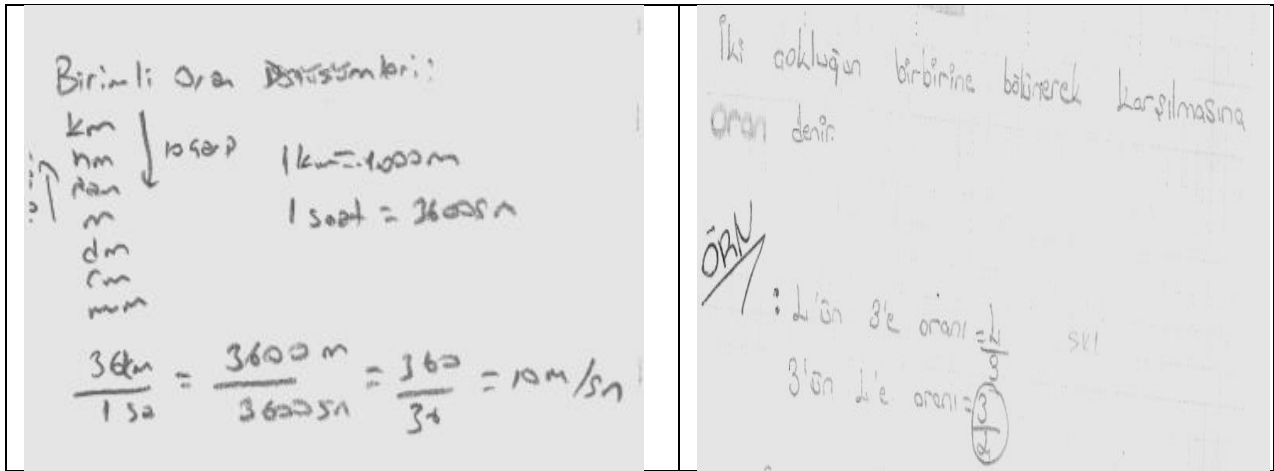 Birimli Oran Dönüşümleri:
km
hm
dam
m
dm
cm
mm
10
1km=1000m
1 saat = 3600sn
36km = 3600 m = 360 = 10m/sn
1 sa 3600sn 36
İki çokluğun birbirine bölünerek karşılmasına
oran denir.
ÖRN
: 4'ün 3'e oranı = 4/3
3'ün 4'e oranı = 3/4